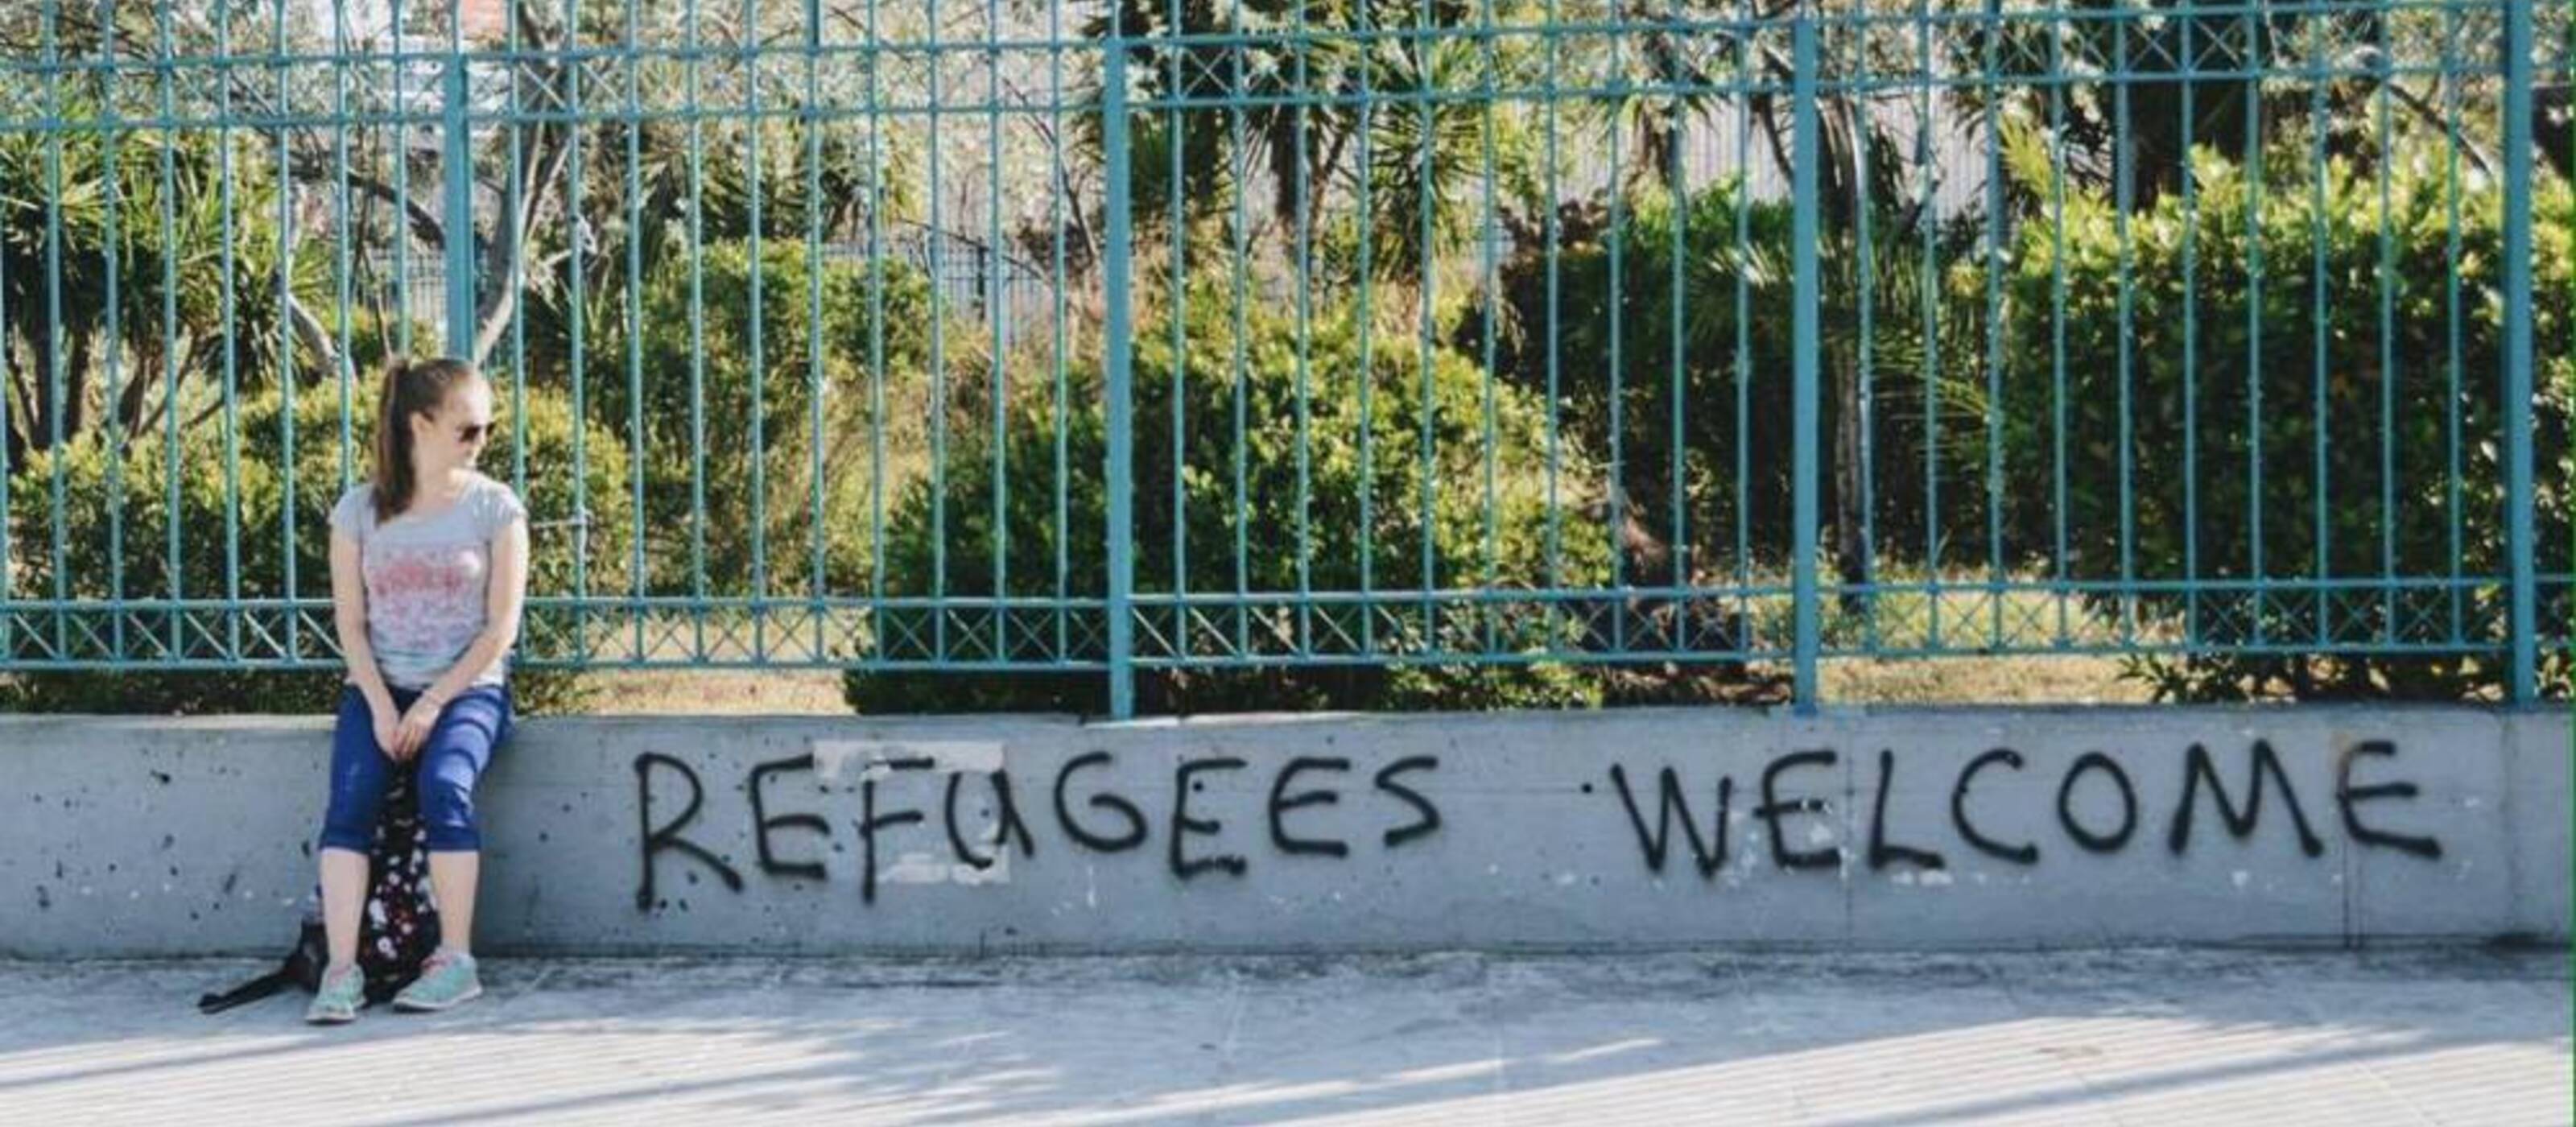 REFUGEES WELCOME